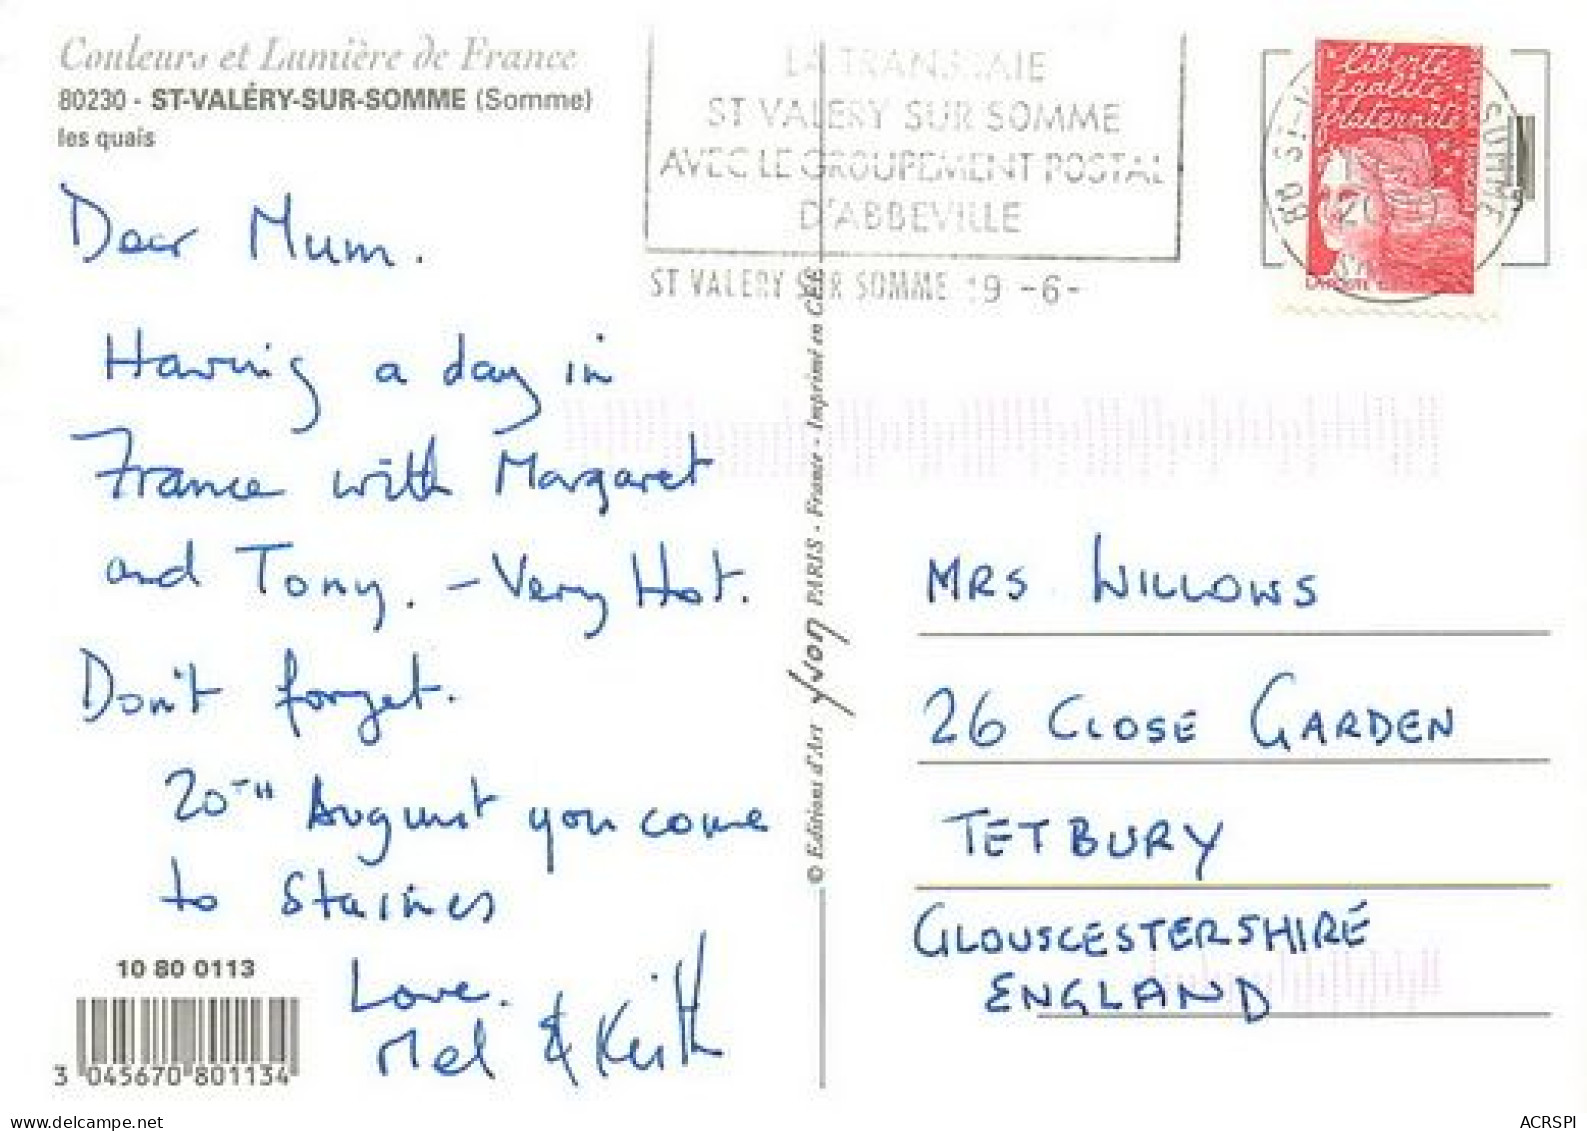 Couleurs et Lumière de France
80230 - ST-VALÉRY-SUR-SOMME (Somme)
les quais
LA TRANSBAIE
ST VALERY SUR SOMME
AVEC LE GROUPEMENT POSTAL
D'ABBEVILLE
ST VALERY SUR SOMME 19 -6-
liberté
égalité
fraternité
LA POSTE
80 ST-V
SOMME
Dear Mum.
Having a day in
France with Margaret
and Tony. - Very Hot.
Don't forget.
20TH August you come
to Staines
Love.
Mel & Keith
10 80 0113
3 045670 801134
© Editions d'Art Yvon PARIS - France - Imprimé en CEE
MRS WILLOWS
26 CLOSE GARDEN
TETBURY
GLOUSCESTERSHIRE
ENGLAND
delcampe.net
ACRSPI